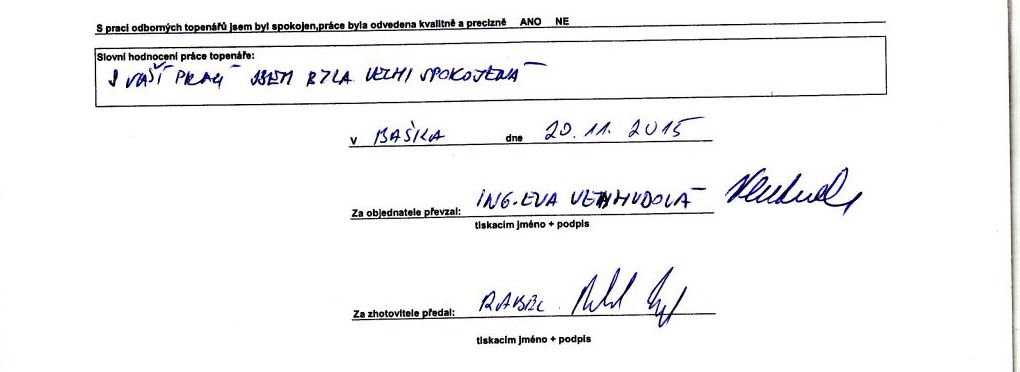 S prací odborných topenářů jsem byl spokojen,práce byla odvedena kvalitně a precizně ANO NE
Slovní hodnocení práce topenáře:
S VAŠÍ PRACÍ JSEM BYLA VELMI SPOKOJENÁ
V BAŠKA dne 20.11.2015
Za objednatele převzal: ING. EVA
tiskacím jméno + podpis
Za zhotovitele předal:
tiskacím jméno + podpis